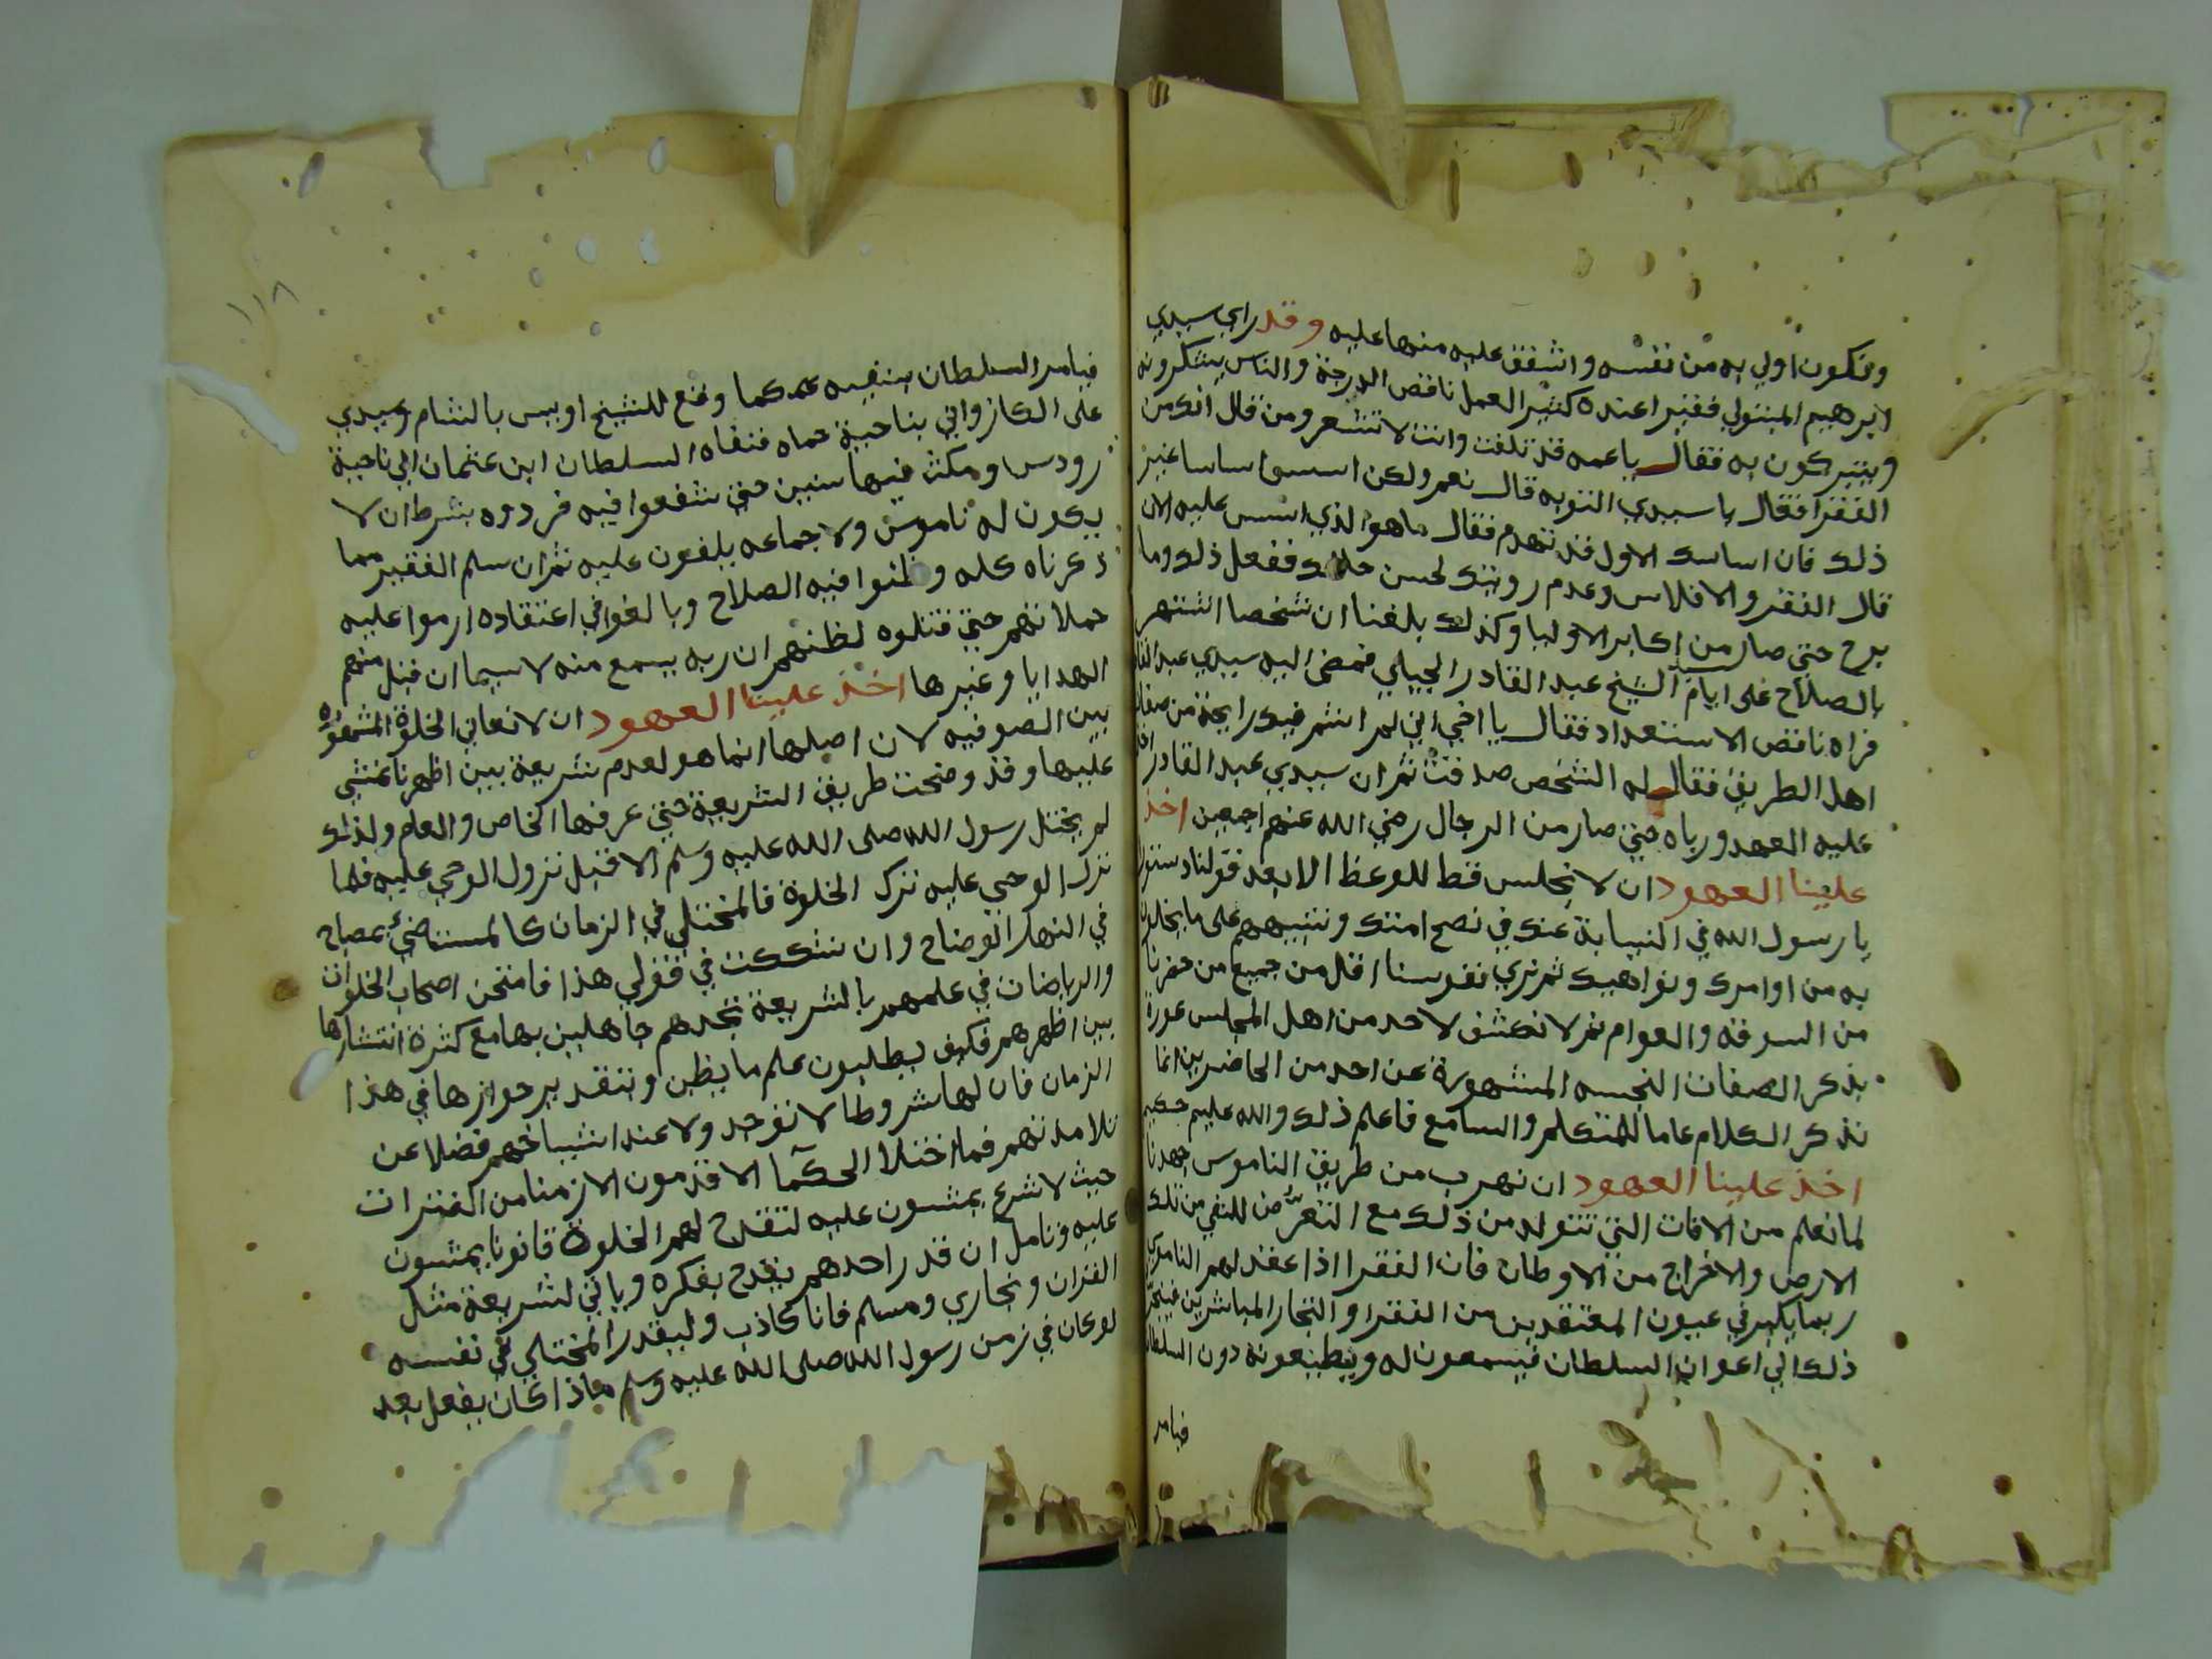 ونكون اولي به من نفسه واشفق عليه منها عليه وقد راي سيدي
ابرهيم المتبولي فقيرا عنده كثير العمل ناقص الدرجة والناس يشكرونه
ويتبركون به فقال يا عمه قد تلفت وانت لا تشعر ومن قال انك من
الفقرا فقال يا سيدي التوبه قال نعم ولكن اسس اساسا غير
ذلك فان اساسك الاول قد تهدم فقال ما هو الذي اسس عليه الان
قال الفقر والافلاس وعدم رويتك لحسن حالك ففعل ذلك وما
برح حتى صار من اكابر الاوليا وكذلك بلغنا ان شخصا اشتهر
بالصلاح على ايام الشيخ عبد القادر الجيلي فمضى اليه سيدي عبد القادر
فراه ناقص الاستعداد فقال يا اخي اني لم اشم فيك رايحة من صفات
اهل الطريق فقال له الشخص صدقت ثم ان سيدي عبد القادر اخذ
عليه العهد ورباه حتى صار من الرجال رضي الله عنهم اجمعين اخذ
علينا العهود ان لا نجلس قط للوعظ الا بعد قولنا دستور
يا رسول الله في النيابة عنك في نصح امتك وتنبيههم على ما يخلون
به من اوامرك ونواهيك ثم نري نفوسنا اقل من جميع من حضرنا
من السوقه والعوام ثم لا نكشف لاحد من اهل المجلس عورة
بذكر الصفات النجسه المشهورة عن احد من الحاضرين انما
نذكر الكلام عاما للمتكلم والسامع فاعلم ذلك والله عليم حكيم
اخذ علينا العهود ان نهرب من طريق الناموس جهدنا
لما نعلم من الافات التي تتولد من ذلك مع التعرض للنفي من تلك
الارض والاخراج من الاوطان فان الفقرا اذا عقد لهم الناموس
ربما يكبر في عيون المعتقدين من الفقرا والتجار المباشرين فينجر
ذلك الي اعوان السلطان فيسمعون له ويطيعونه دون السلطان
فيامر
١١٨
فيامر السلطان بنفيه عمكما وقع للشيخ اويس بالشام وسيدي
على الكازواني بناحية حماه فنفاه السلطان ابن عثمان الي ناحية
رودس ومكث فيها سنين حتى شفعوا فيه فردوه بشرط ان لا
يكون له ناموس ولا جماعه يلفون عليه ثم ان سلم الفقير مما
ذكرناه كله وظنوا فيه الصلاح وبالغوا في اعتقاده ارموا عليه
حملاتهم حتى قتلوه لظنهم ان ربه يسمع منه لا سيما ان قبل منهم
الهدايا وغيرها اخذ علينا العهود ان لا نعاني الخلوة المشهوره
بين الصوفيه لان اصلها انما هو لعدم شريعة بين اظهرنا نمشي
عليها وقد وضحت طريق الشريعة حتى عرفها الخاص والعام ولذلك
لم يختل رسول الله صلى الله عليه وسلم الا قبل نزول الوحي عليه فلما
نزل الوحي عليه ترك الخلوة فالمختلي في الزمان كالمستضيئ بمصباح
في النهار الوضاح وان شككت في قولي هذا فامتحن اصحاب الخلوات
والرياضات في علمهم بالشريعة تجدهم جاهلين بها مع كثرة انتشارها
بين اظهرهم فكيف يطلبون علم ما يظن وبتقدير جوازها في هذا
الزمان فان لها شروطا لا توجد ولا عند اشياخهم فضلا عن
تلامذتهم فما اختلا الحكما الاقدمون الا زمنا من الفترات
حيث لا شرع يمشون عليه لتقدح لهم الخلوة قانونا يمشون
عليه وتامل ان قدر احدهم يقدح بفكره وياتي لشريعة مثل
القران وبخاري ومسلم فانا كاذب وليقدر المختلي في نفسه
لو كان في زمن رسول الله صلى الله عليه وسلم ماذا كان يفعل بعد